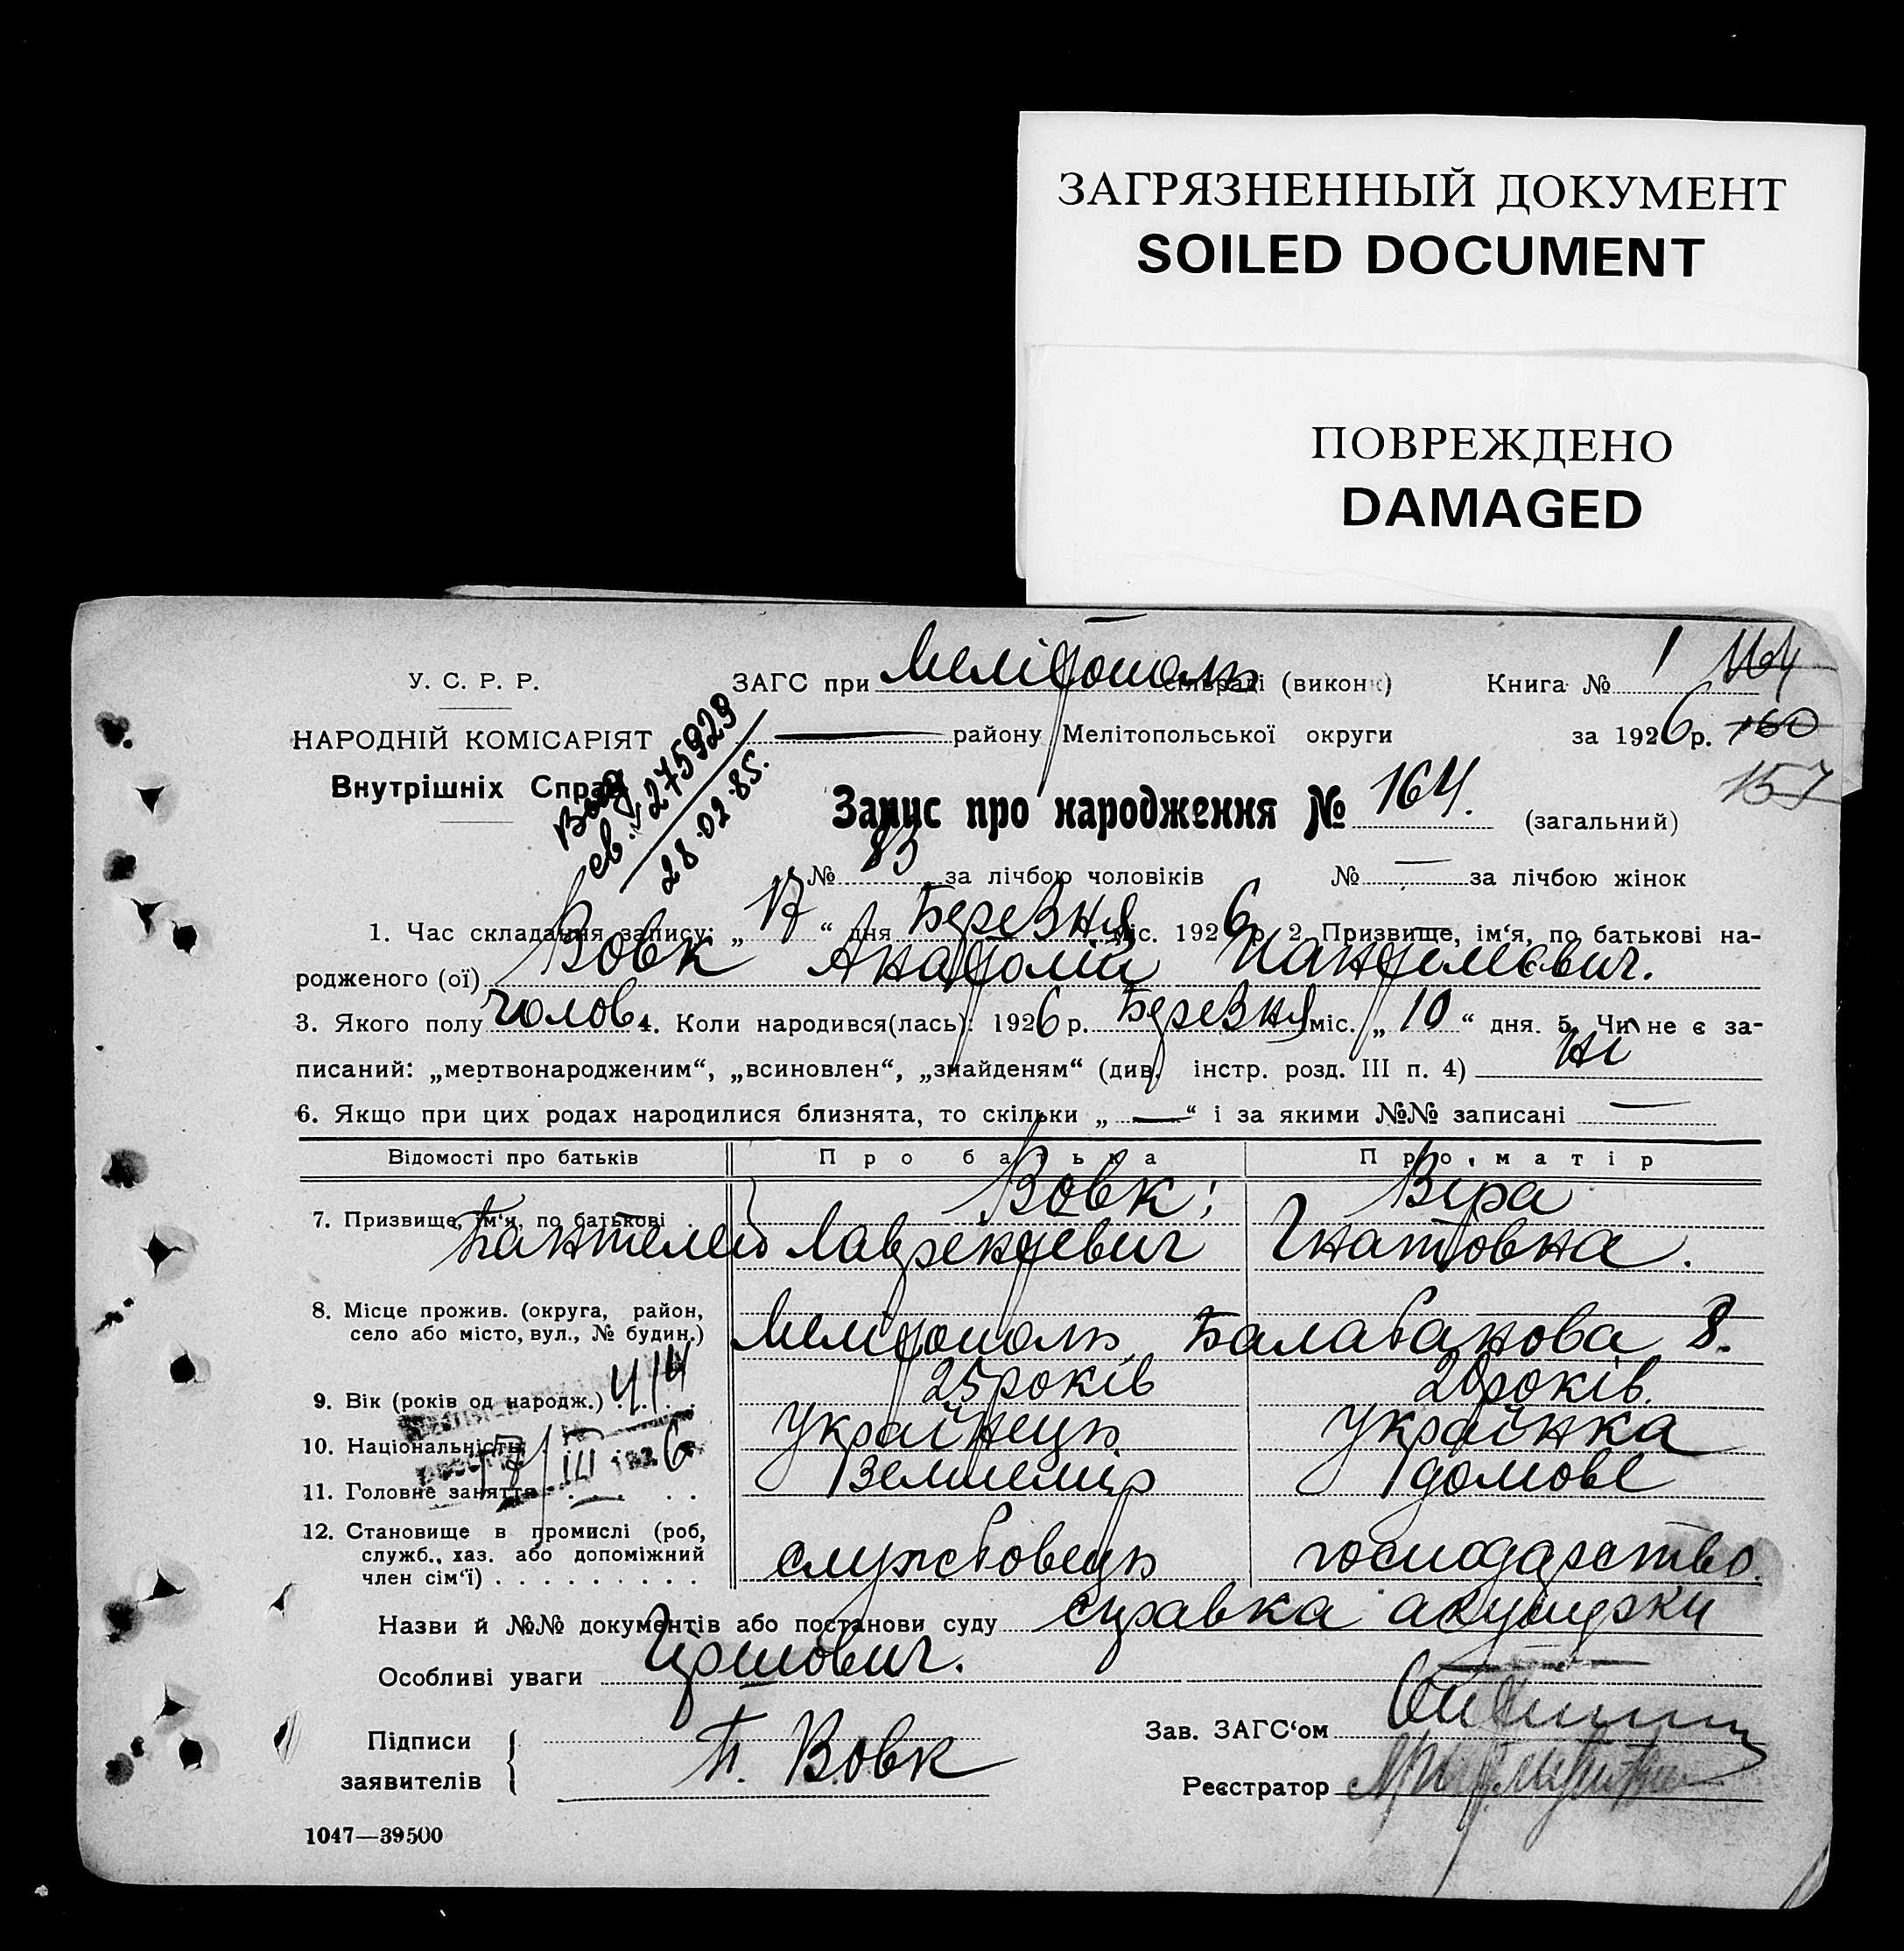 ЗАГРЯЗНЕННЫЙ ДОКУМЕНТ
SOILED DOCUMENT
ПОВРЕЖДЕНО
DAMAGED
У. С. Р. Р.
НАРОДНІЙ КОМІСАРІЯТ
Внутрішніх Справ
275923
28.02.85.
ЗАГС при Мелітополь сільраді (виконк) Книга № 1 164
— району Мелітопольської округи за 1926 р. 160
157
Запис про народження № 164. (загальний)
№ 83 за лічбою чоловіків № — за лічбою жінок
1. Час складання запису: „17“ дня Березня міс. 1926 р. 2 Призвище, ім‘я, по батькові на-
родженого (ої) Вовк Анатолій Пантелієвич.
3. Якого полу чолов 4. Коли народився(лась): 1926 р. Березня міс. „10“ дня. 5. Чи не є за-
писаний: „мертвонародженим“, „всиновлен“, „знайденям“ (див. інстр. розд. III п. 4) Ні
6. Якщо при цих родах народилися близнята, то скільки „—“ і за якими №№ записані —
Відомості про батьків Про батька Про матір
7. Призвище, ім‘я, по батькові Вовк; Віра
Пантелей Лаврентиевич Гнатовна.
8. Місце прожив. (округа, район,
село або місто, вул., № будин.) Мелітополь, Балабанова 8.
9. Вік (років од народж.) 414 25 років 20 років.
10. Національність Українець Українка
11. Головне заняття Землемір домове
17/III 1926
12. Становище в промислі (роб,
служб., хаз. або допоміжний
член сім‘ї) службовець господарство.
Назви й №№ документів або постанови суду справка акушерки
Особливі уваги Гіршович.
Підписи
заявителів П. Вовк
Зав. ЗАГС‘ом
Реєстратор
1047—39500